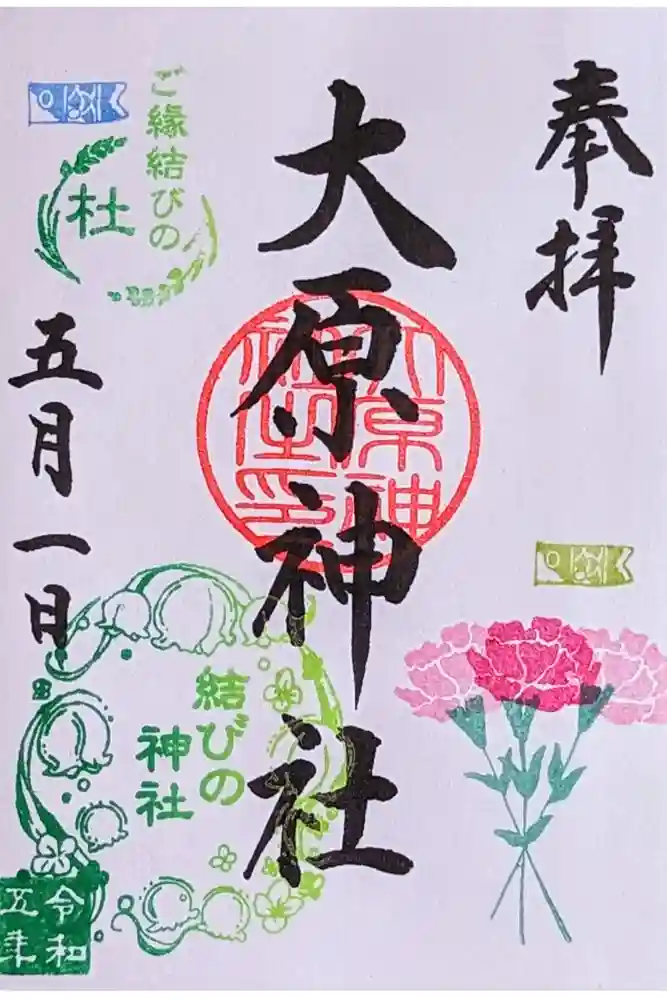 奉拝
大原神社
大原神
社之印
五月一日
ご縁結びの
杜
結びの
神社
令和
五年